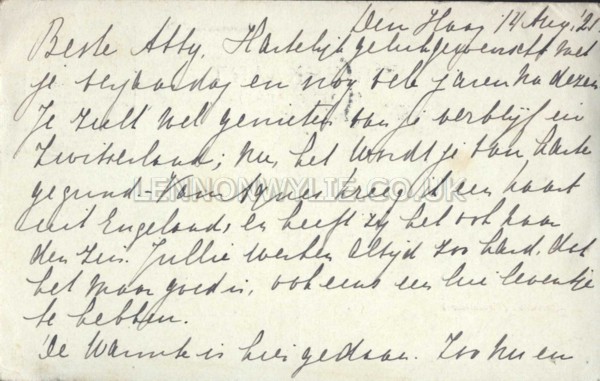 Den Haag 14 Aug. '21.
Beste Atty. Hartelijk gelukgewenscht met
je verjaardag en nog vele jaren na dezen
Je zult wel genieten van je verblijf in
Zwitserland; Nu, het wordt je van harte
gegund. Van Agnes kreeg ik een kaart
LENNONWYLIE.CO.UK
uit Engeland, en heeft zij het ook naar
den zin. Jullie werken altijd zoo hard, dat
het maar goed is, ook eens een lui leventje
te hebben.
De warmte is hier gedaan. Zoo nu en